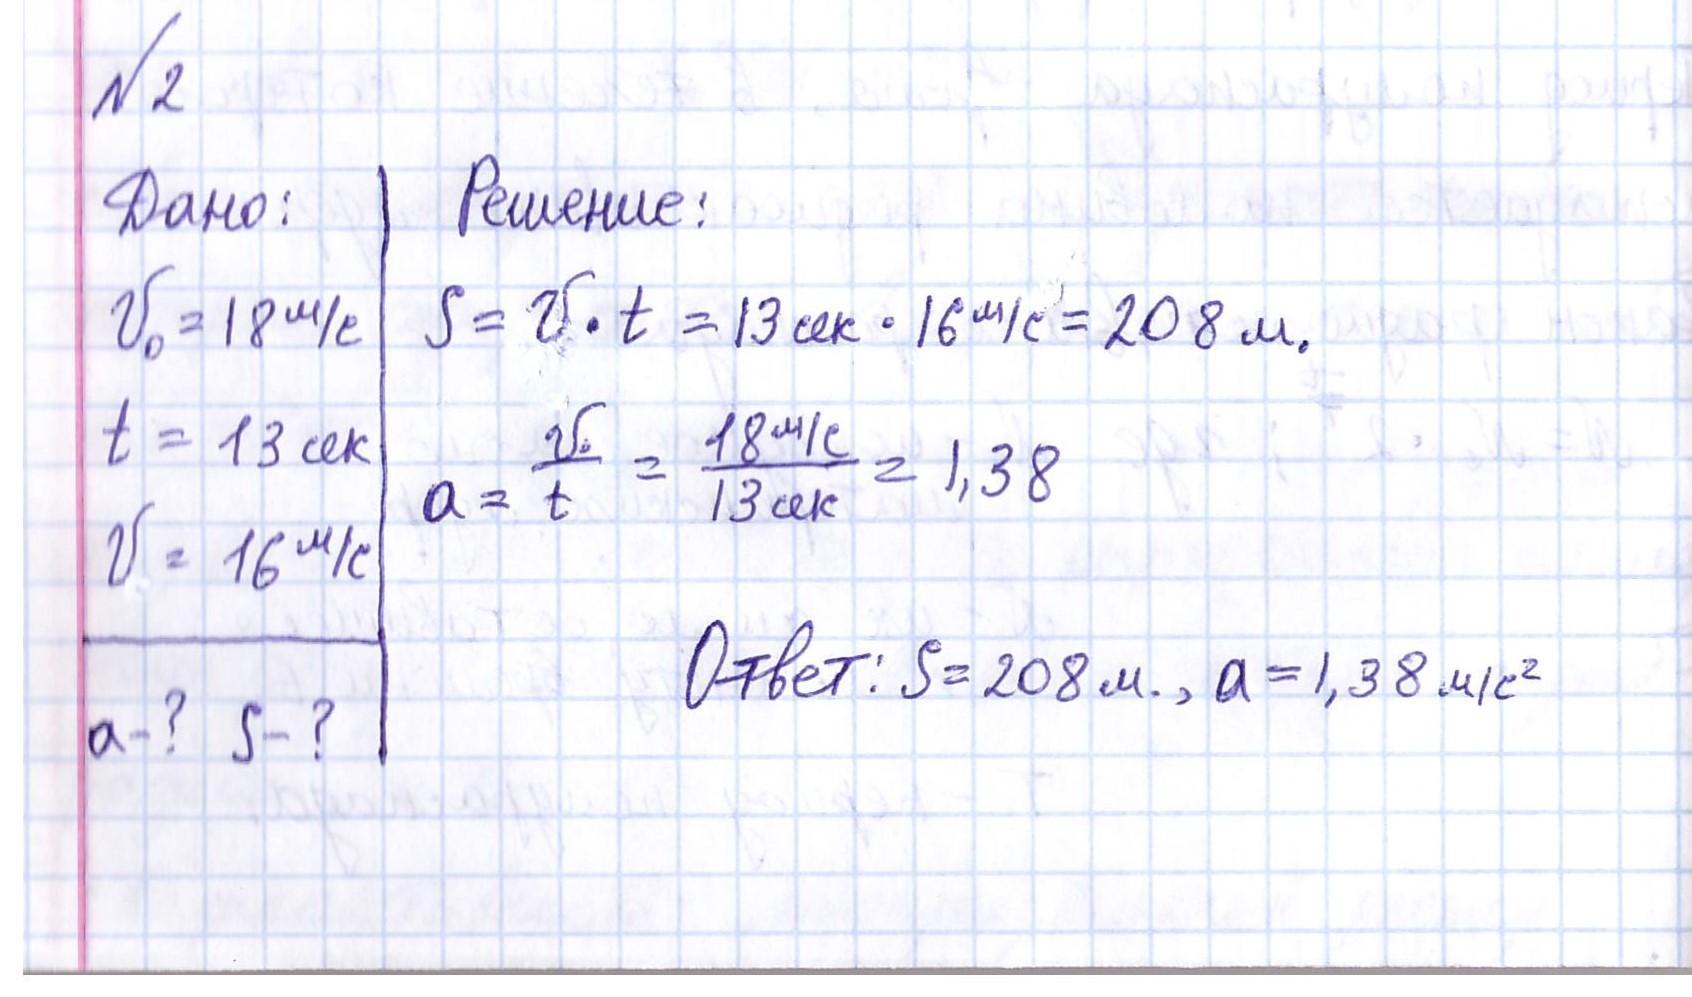 №2
Дано:
V₀ = 18 м/с
t = 13 сек
V = 16 м/с
a - ? S - ?
Решение:
S = V · t = 13 сек · 16 м/с = 208 м.
a = V₀/t = 18 м/с / 13 сек = 1,38
Ответ: S = 208 м., a = 1,38 м/с²